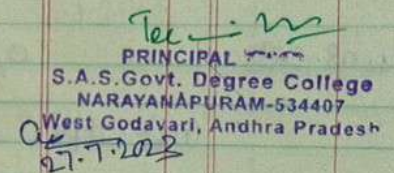 PRINCIPAL
S.A.S.Govt. Degree College
NARAYANAPURAM-534407
West Godavari, Andhra Pradesh
27.7.2023